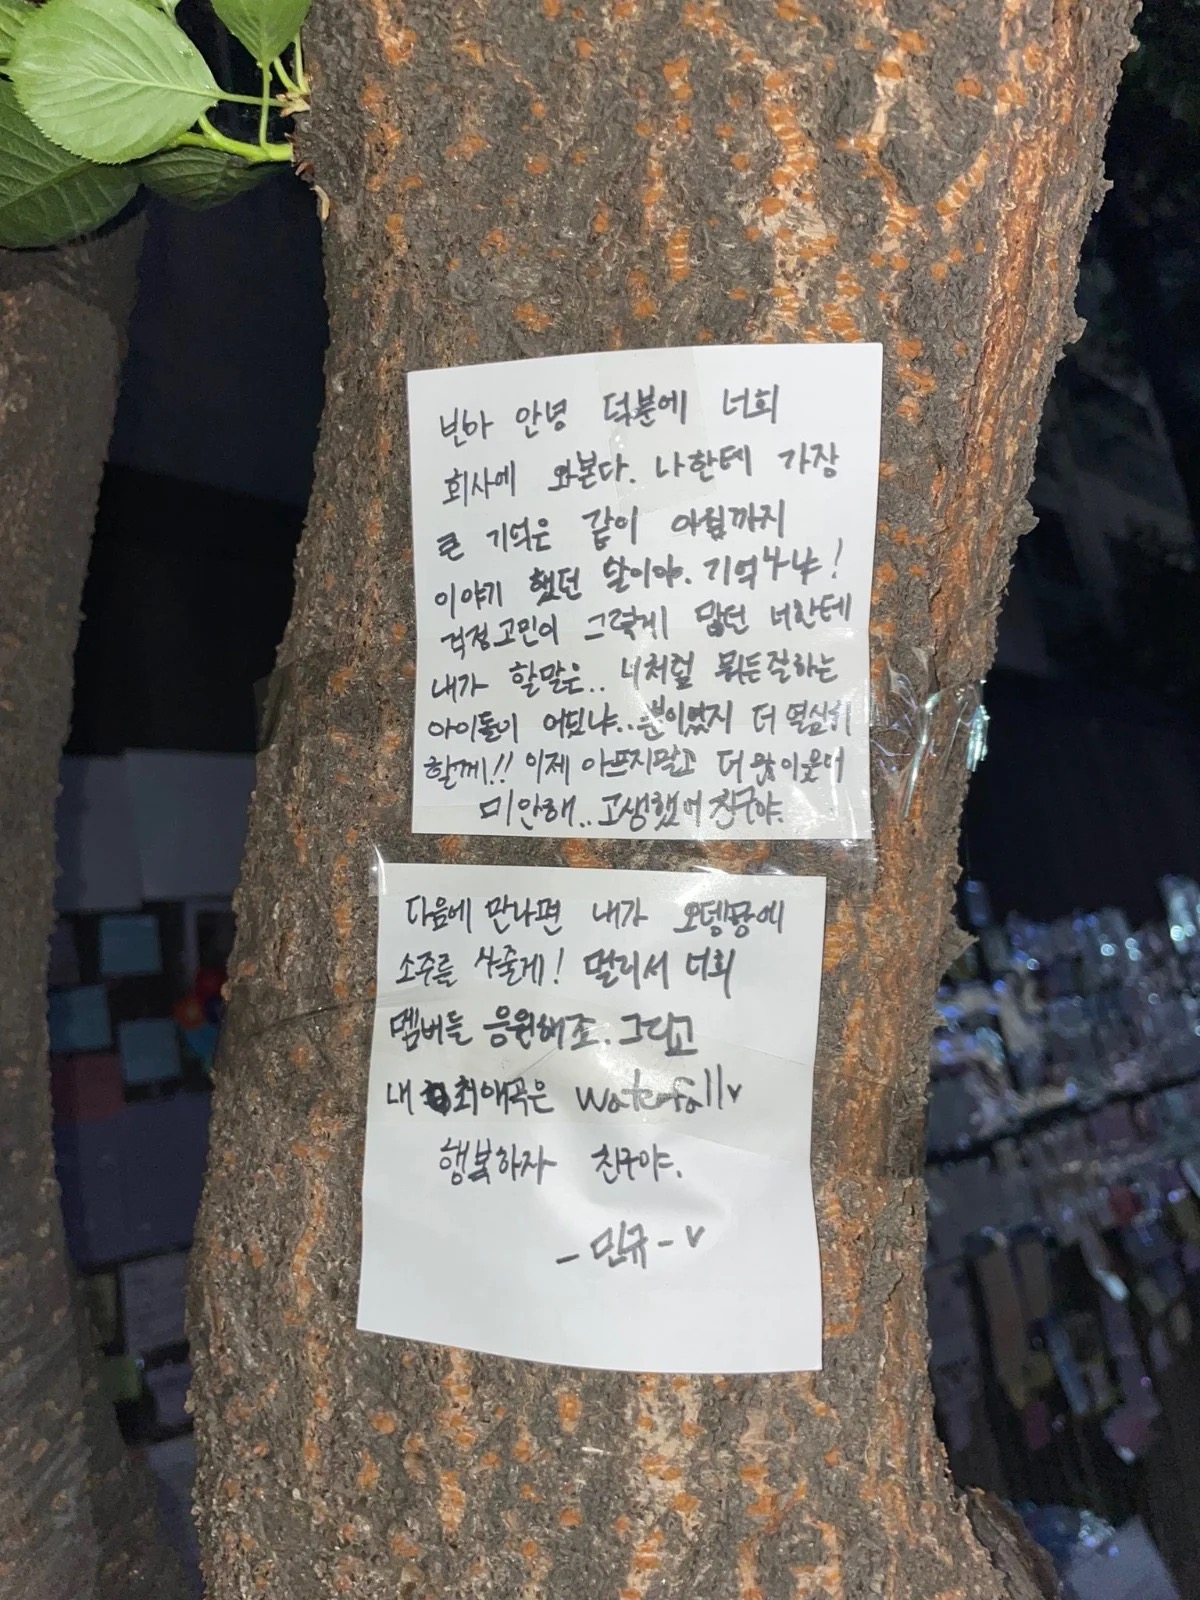 빈아 안녕 덕분에 너희
회사에 와본다. 나한테 가장
큰 기억은 같이 아침까지
이야기 했던 날이야. 기억나냐!
걱정고민이 그렇게 많던 너한테
내가 할말은.. 너처럼 뭐든잘하는
아이돌이 어딨냐.. 뿐이었지 더 열심히
할께!! 이제 아프지말고 더 많이웃어
미안해.. 고생했어 친구야.
다음에 만나면 내가 오뎅탕에
소주를 사줄게! 멀리서 너희
멤버들 응원해조. 그리고
내 최애곡은 Waterfall♥
행복하자 친구야.
- 민규 - ♥